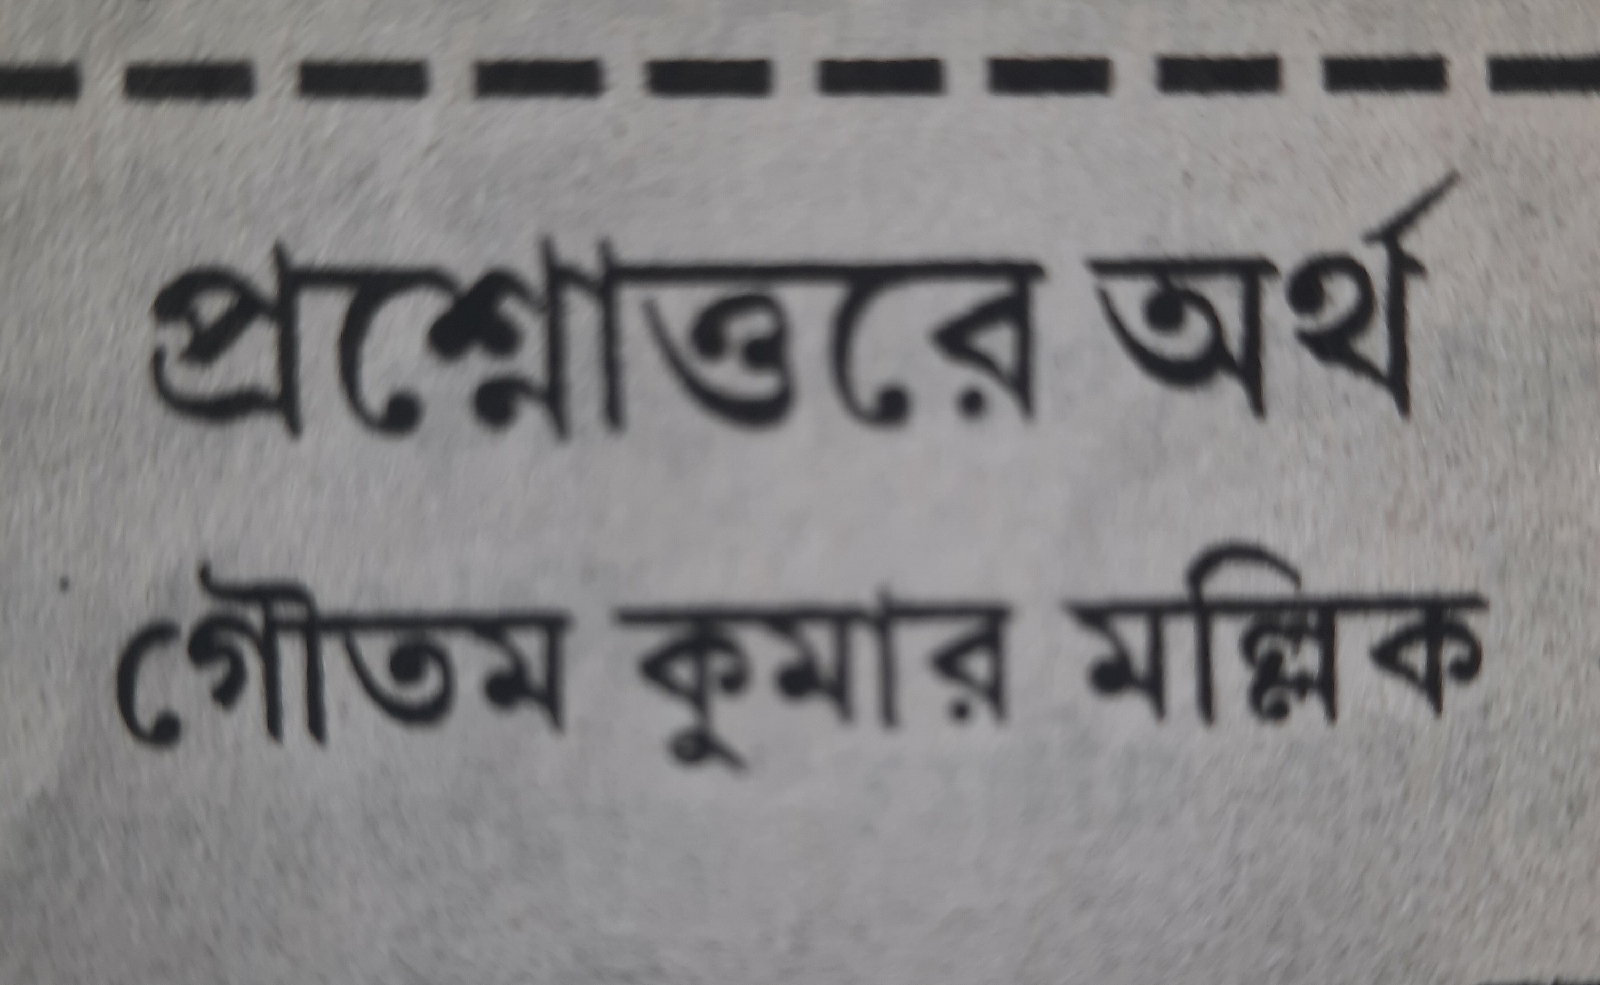 প্রশ্নোত্তরে অর্থ
গৌতম কুমার মল্লিক